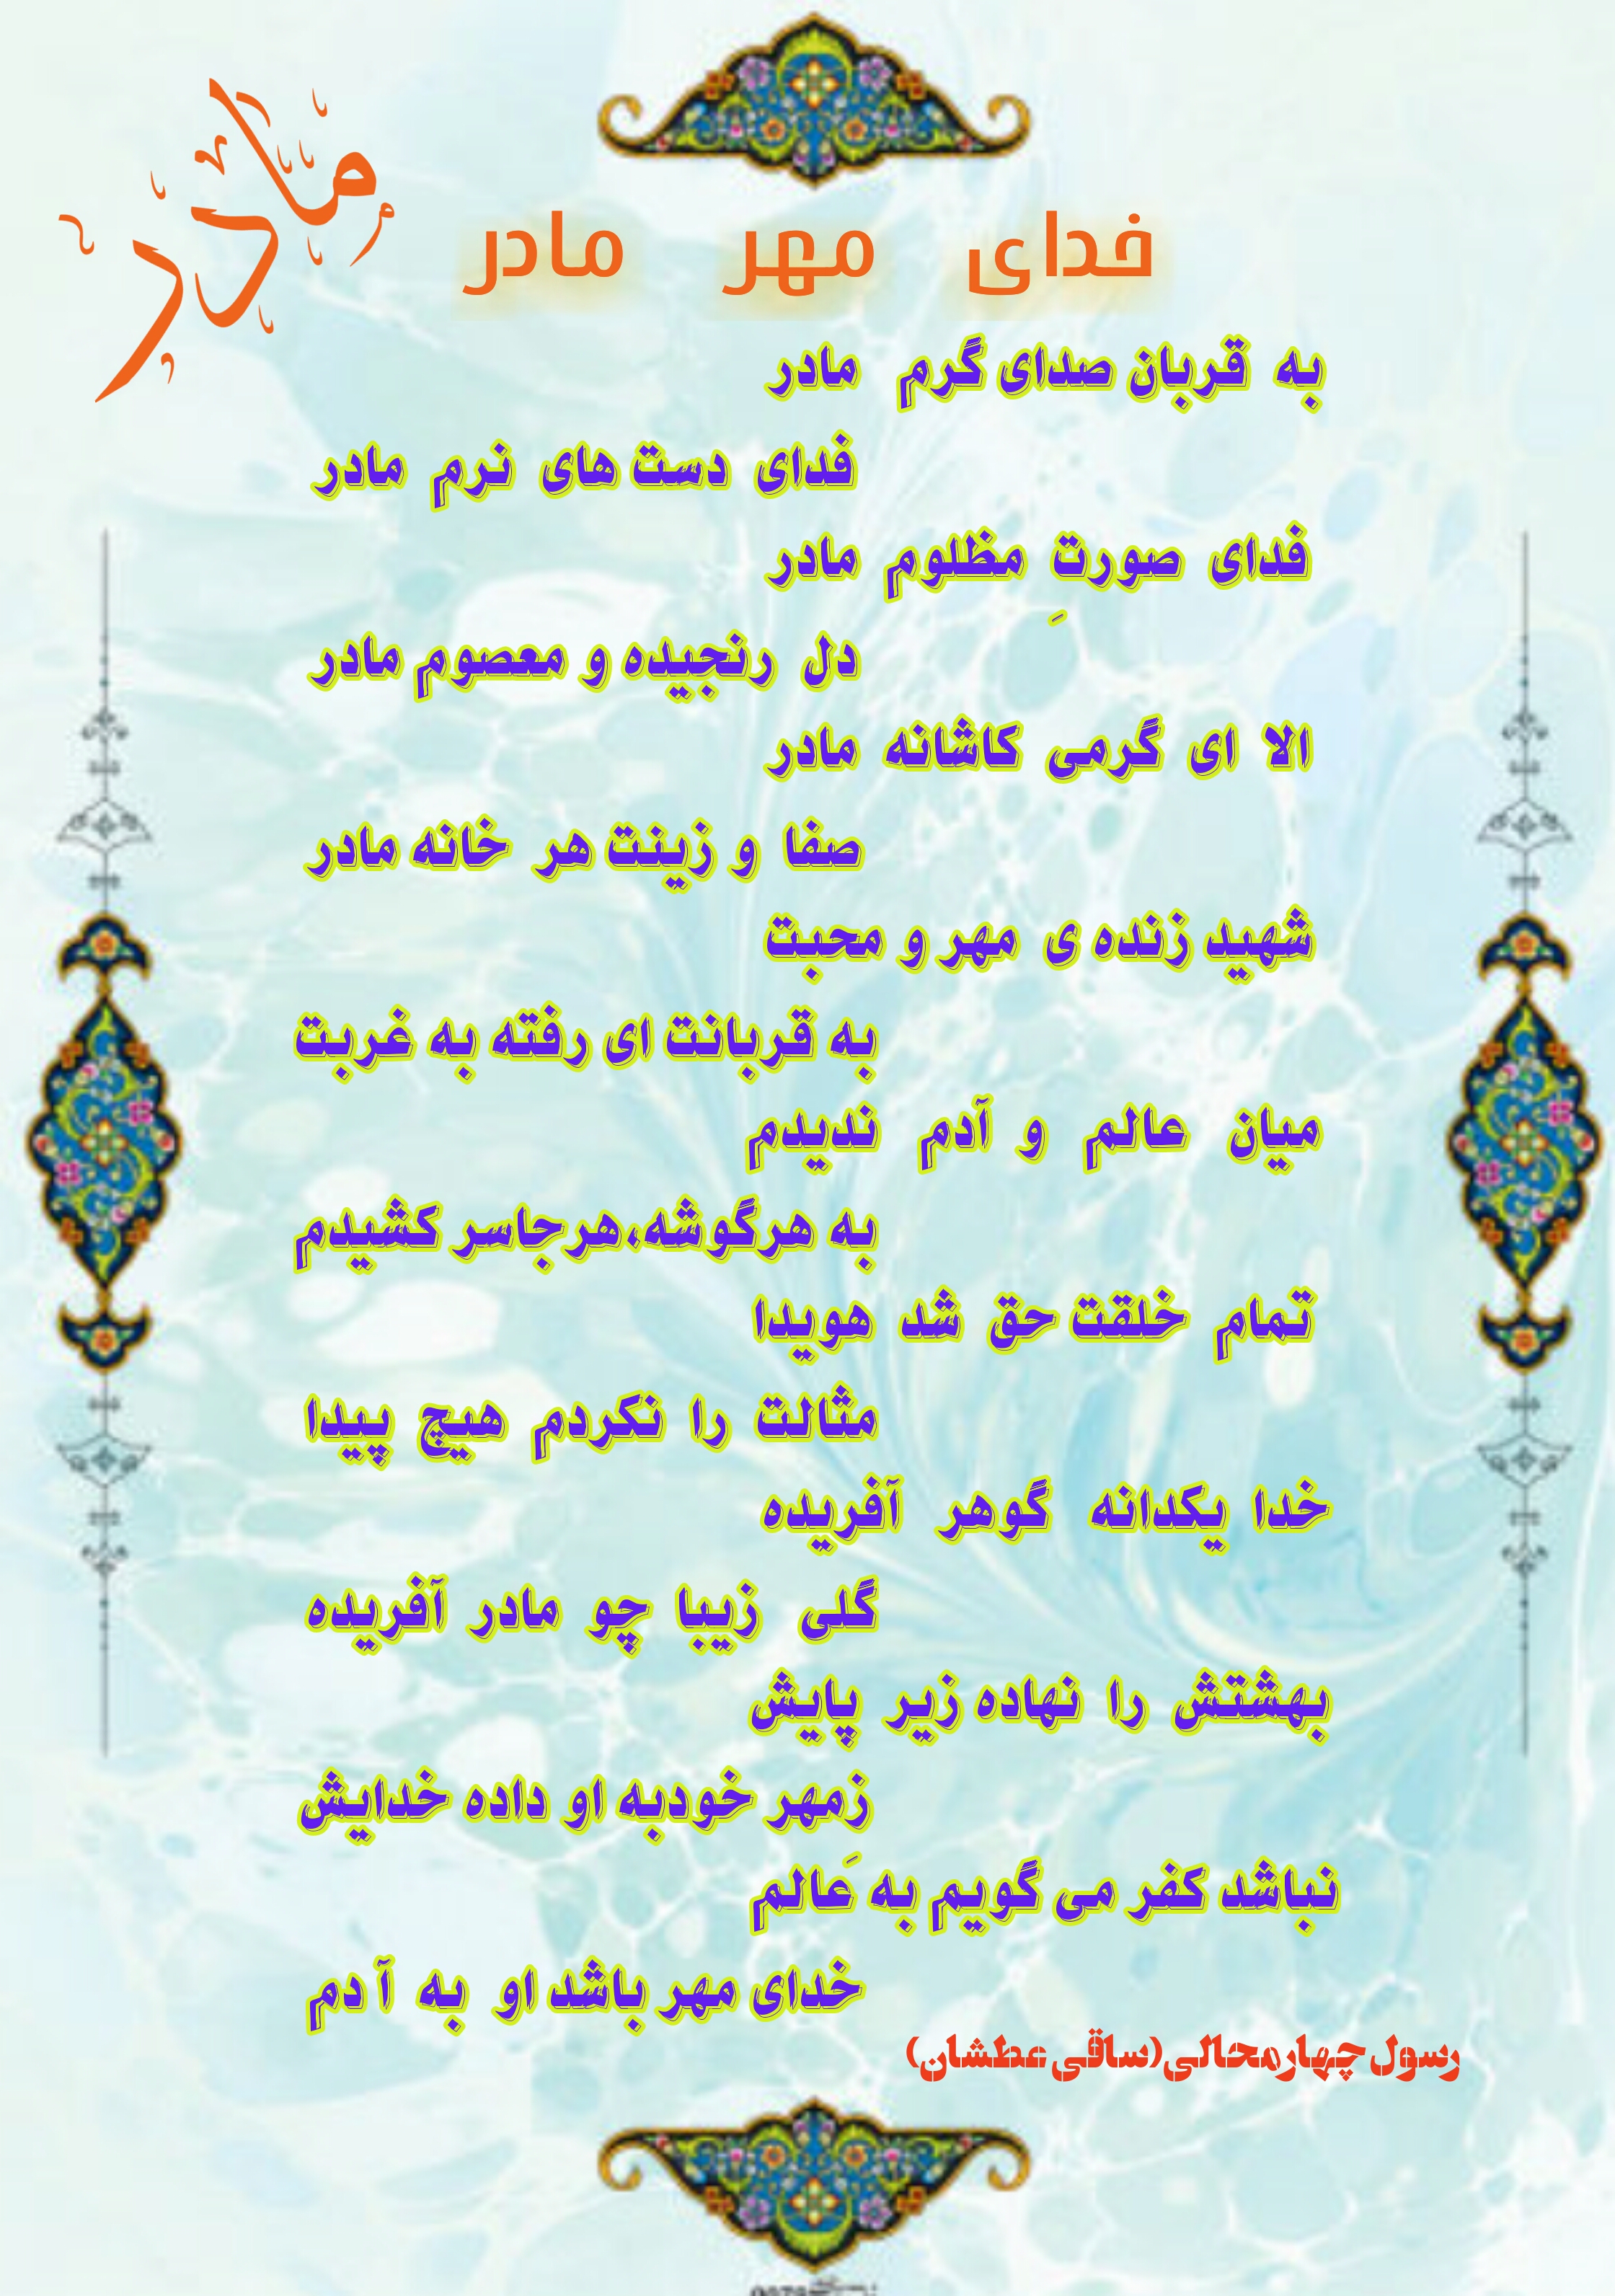 مادر
خدای مهر مادر
به قربان صدای گرم مادر
فدای دست های نرم مادر
فدای صورتِ مظلوم مادر
دل رنجیده و معصوم مادر
الا ای گرمی کاشانه مادر
صفا و زینت هر خانه مادر
شهید زنده ی مهر و محبت
به قربانت ای رفته به غربت
میان عالم و آدم ندیدم
به هرگوشه،هرجاسر کشیدم
تمام خلقت حق شد هویدا
مثالت را نکردم هیچ پیدا
خدا یکدانه گوهر آفریده
گلی زیبا چو مادر آفریده
بهشتش را نهاده زیر پایش
زمهر خودبه او داده خدایش
نباشد کفر می گویم به عَالم
خدای مهر باشد او به آ دم
رسول چهارمحالی(ساقی عطشان)